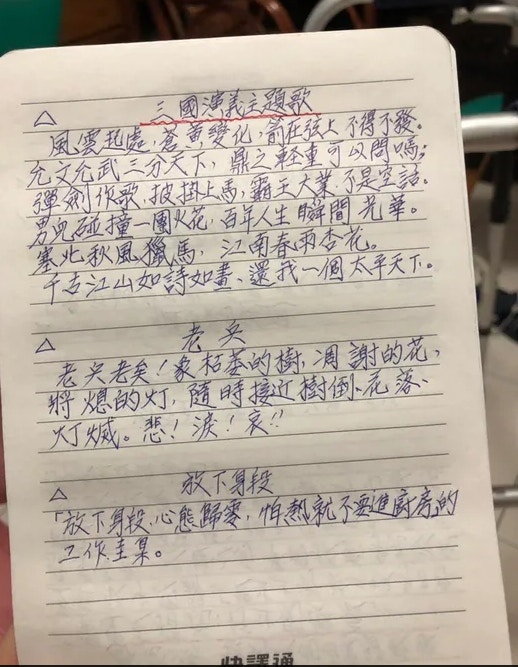 △ 三國演義主題歌
風雲起處,蒼黃變化,箭在弦上不得不發。
允文允武三分天下,鼎之輕重可以問嗎;
彈劍作歌,披掛上馬,霸王大業,不是空話。
男兒碰撞一團火花,百年人生瞬間光華。
塞北秋風獵馬,江南春雨杏花。
千古江山如詩如畫、還我一個太平天下。
△ 老兵
老兵老矣!象枯萎的樹,凋謝的花,
將熄的灯,隨時接近樹倒、花落、
灯滅。悲!淚!哀!!
△ 放下身段
「放下身段、心態歸零,怕熱就不要進廚房」的
工作圭臬。
快譯通